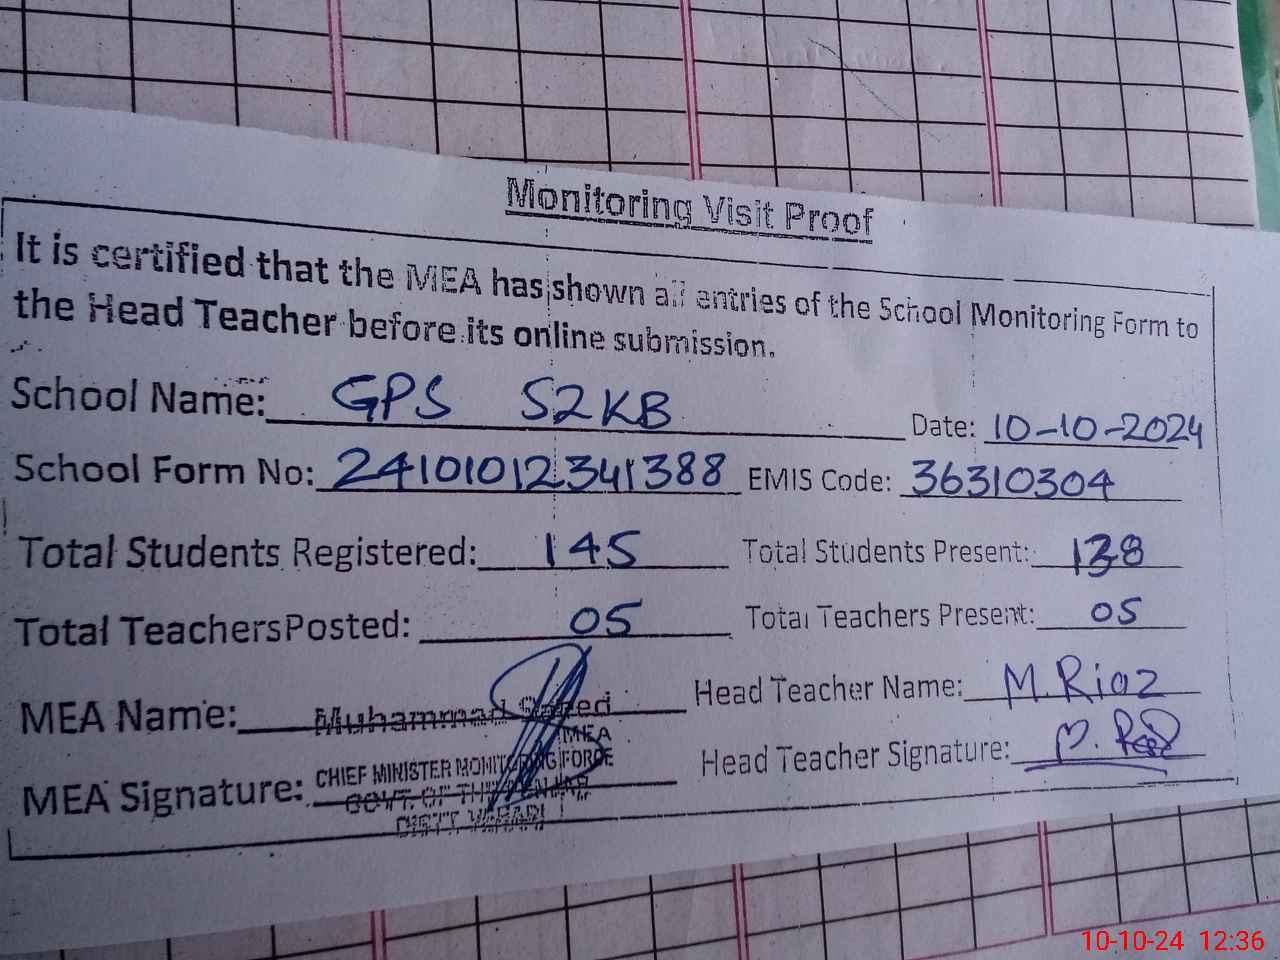 Monitoring Visit Proof
It is certified that the MEA has shown all entries of the School Monitoring Form to
the Head Teacher before its online submission.
School Name: GPS 52KB Date: 10-10-2024
School Form No: 24101012341388 EMIS Code: 36310304
Total Students Registered: 145 Total Students Present: 138
Total Teachers Posted: 05 Total Teachers Present: 05
MEA Name: Muhammad Saeed Head Teacher Name: M. Riaz
MEA
MEA Signature: CHIEF MINISTER MONITORING FORCE Head Teacher Signature: M. Riaz
GOVT. OF THE PUNJAB
DISTT. VEHARI
10-10-24 12:36